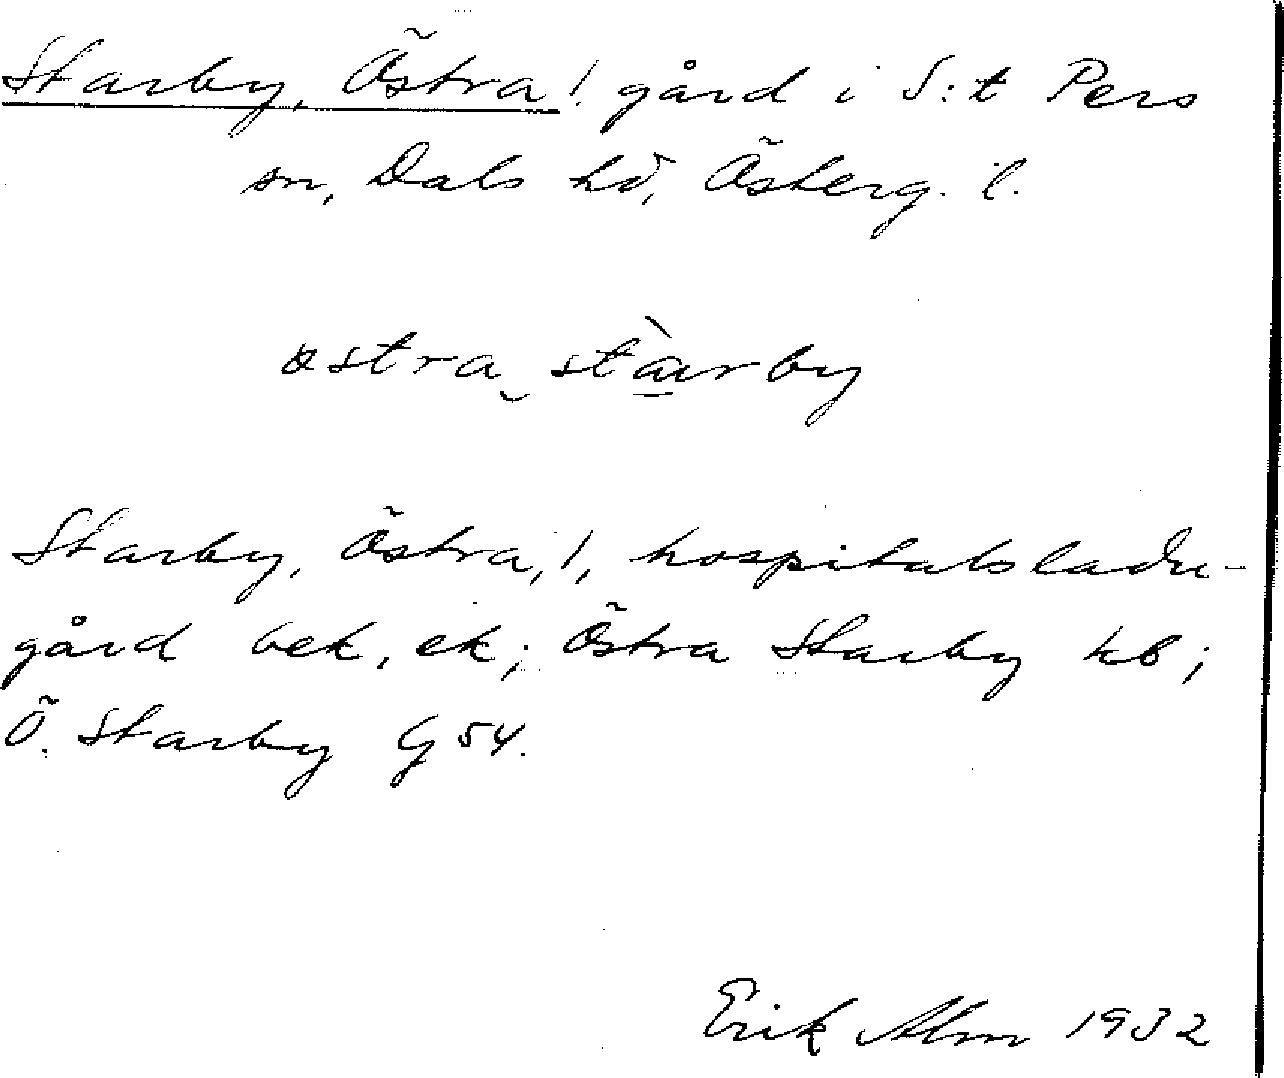 Starby, Östra! gård i S:t Pers
sn, Dals hd, Österg. l.
östra stàrby
Starby, Östra, 1, hospitalsladu-
gård bek, ek; Östra Starby hb;
Ö. Starby G 54.
Erik Alm 1932